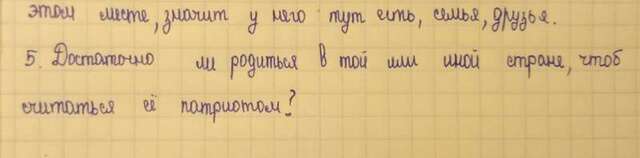 этом месте, значит у него тут есть, семья, друзья.
5. Достаточно ли родиться в той или иной стране, чтоб
считаться её патриотом?